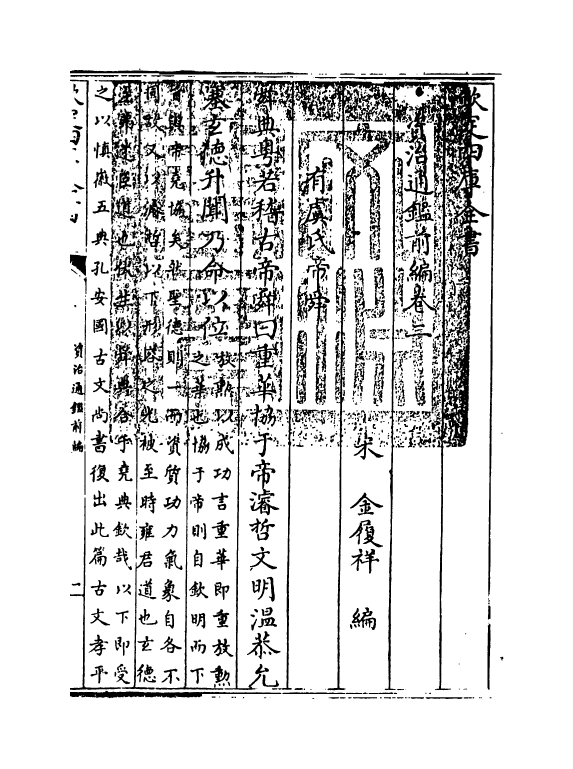 欽定四庫全書
資治通鑑前編卷二
宋 金履祥 編
有虞氏帝舜
典粤若稽古帝舜曰重華協于帝濬哲文明温恭允
塞玄德升聞乃命以位
放勲以成功言重華即重放勲
之華也協于帝則自欽明而下
與帝堯協矣然聖德則一而資質功力氣象自各不
同
以下形容之光被至時雍君道也玄德
道也
典合乎堯典欽哉以下即受
之以慎徽五典孔安國古文尚書復出此篇古文孝平
資治通鑑前編
二